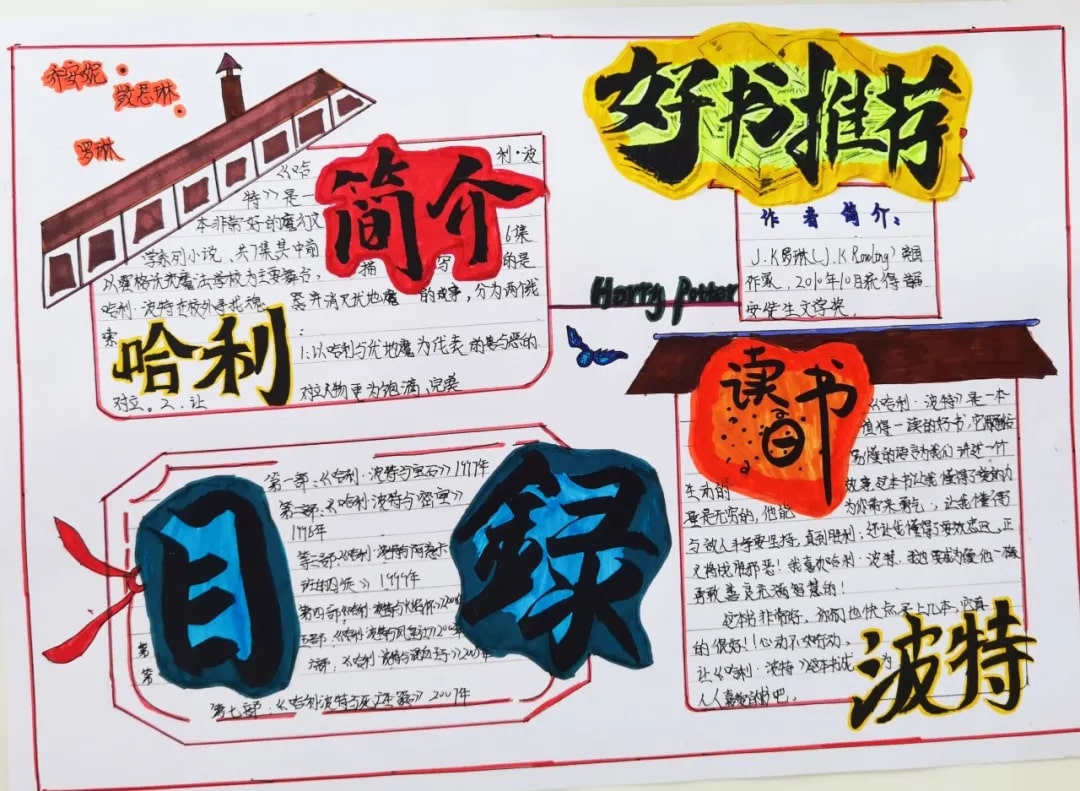 乔安妮·
凯瑟琳·
罗琳
好书推荐
简介
《哈 利·波
特》是一
本非常好的魔幻文
学系列小说,共7集其中前 6集
以霍格沃兹魔法学校为主要舞台, 描写 的是
哈利·波特在校外寻找魂
器并消灭伏地魔 的故事,分为两个线
索:
1.以哈利与伏地魔为代表的善与恶的
对立。2.让 对立人物更为饱满、完美
哈利
作者简介:
J.K罗琳(J.K Rowling)英国
作家,2010年10月获得首届
安徒生文学奖。
Harry Potter
目录
第一部:《哈利·波特与 石》1997年
第二部:《哈利·波特与密室》
1998年
第三部:《哈利·波特与阿兹卡
班的囚徒》1999年
第四部《哈利·波特与火焰杯》
第五部:《哈利·波特与凤凰社》
第六部:《哈利·波特与混血王子》
第七部:《哈利波特与死亡圣器》2007年
读书
《哈利·波特》是一本
值得一读的好书,它用
易懂的语言为我们讲述一个
生动的 故事,这本书让我懂得了爱的力
量是无穷的,他能 为你带来勇气,让我懂得
与敌人斗争要坚持,直到胜利;还让我懂得了
又将战胜邪恶!我喜欢哈利·波特,我也要成为像他一样
勇敢善良充满智慧的!
这本书非常好,你们也快点买上几本,它真
的很好!!心动不如行动,
让《哈利·波特》这本书成 为
人人喜爱的书吧。
波特